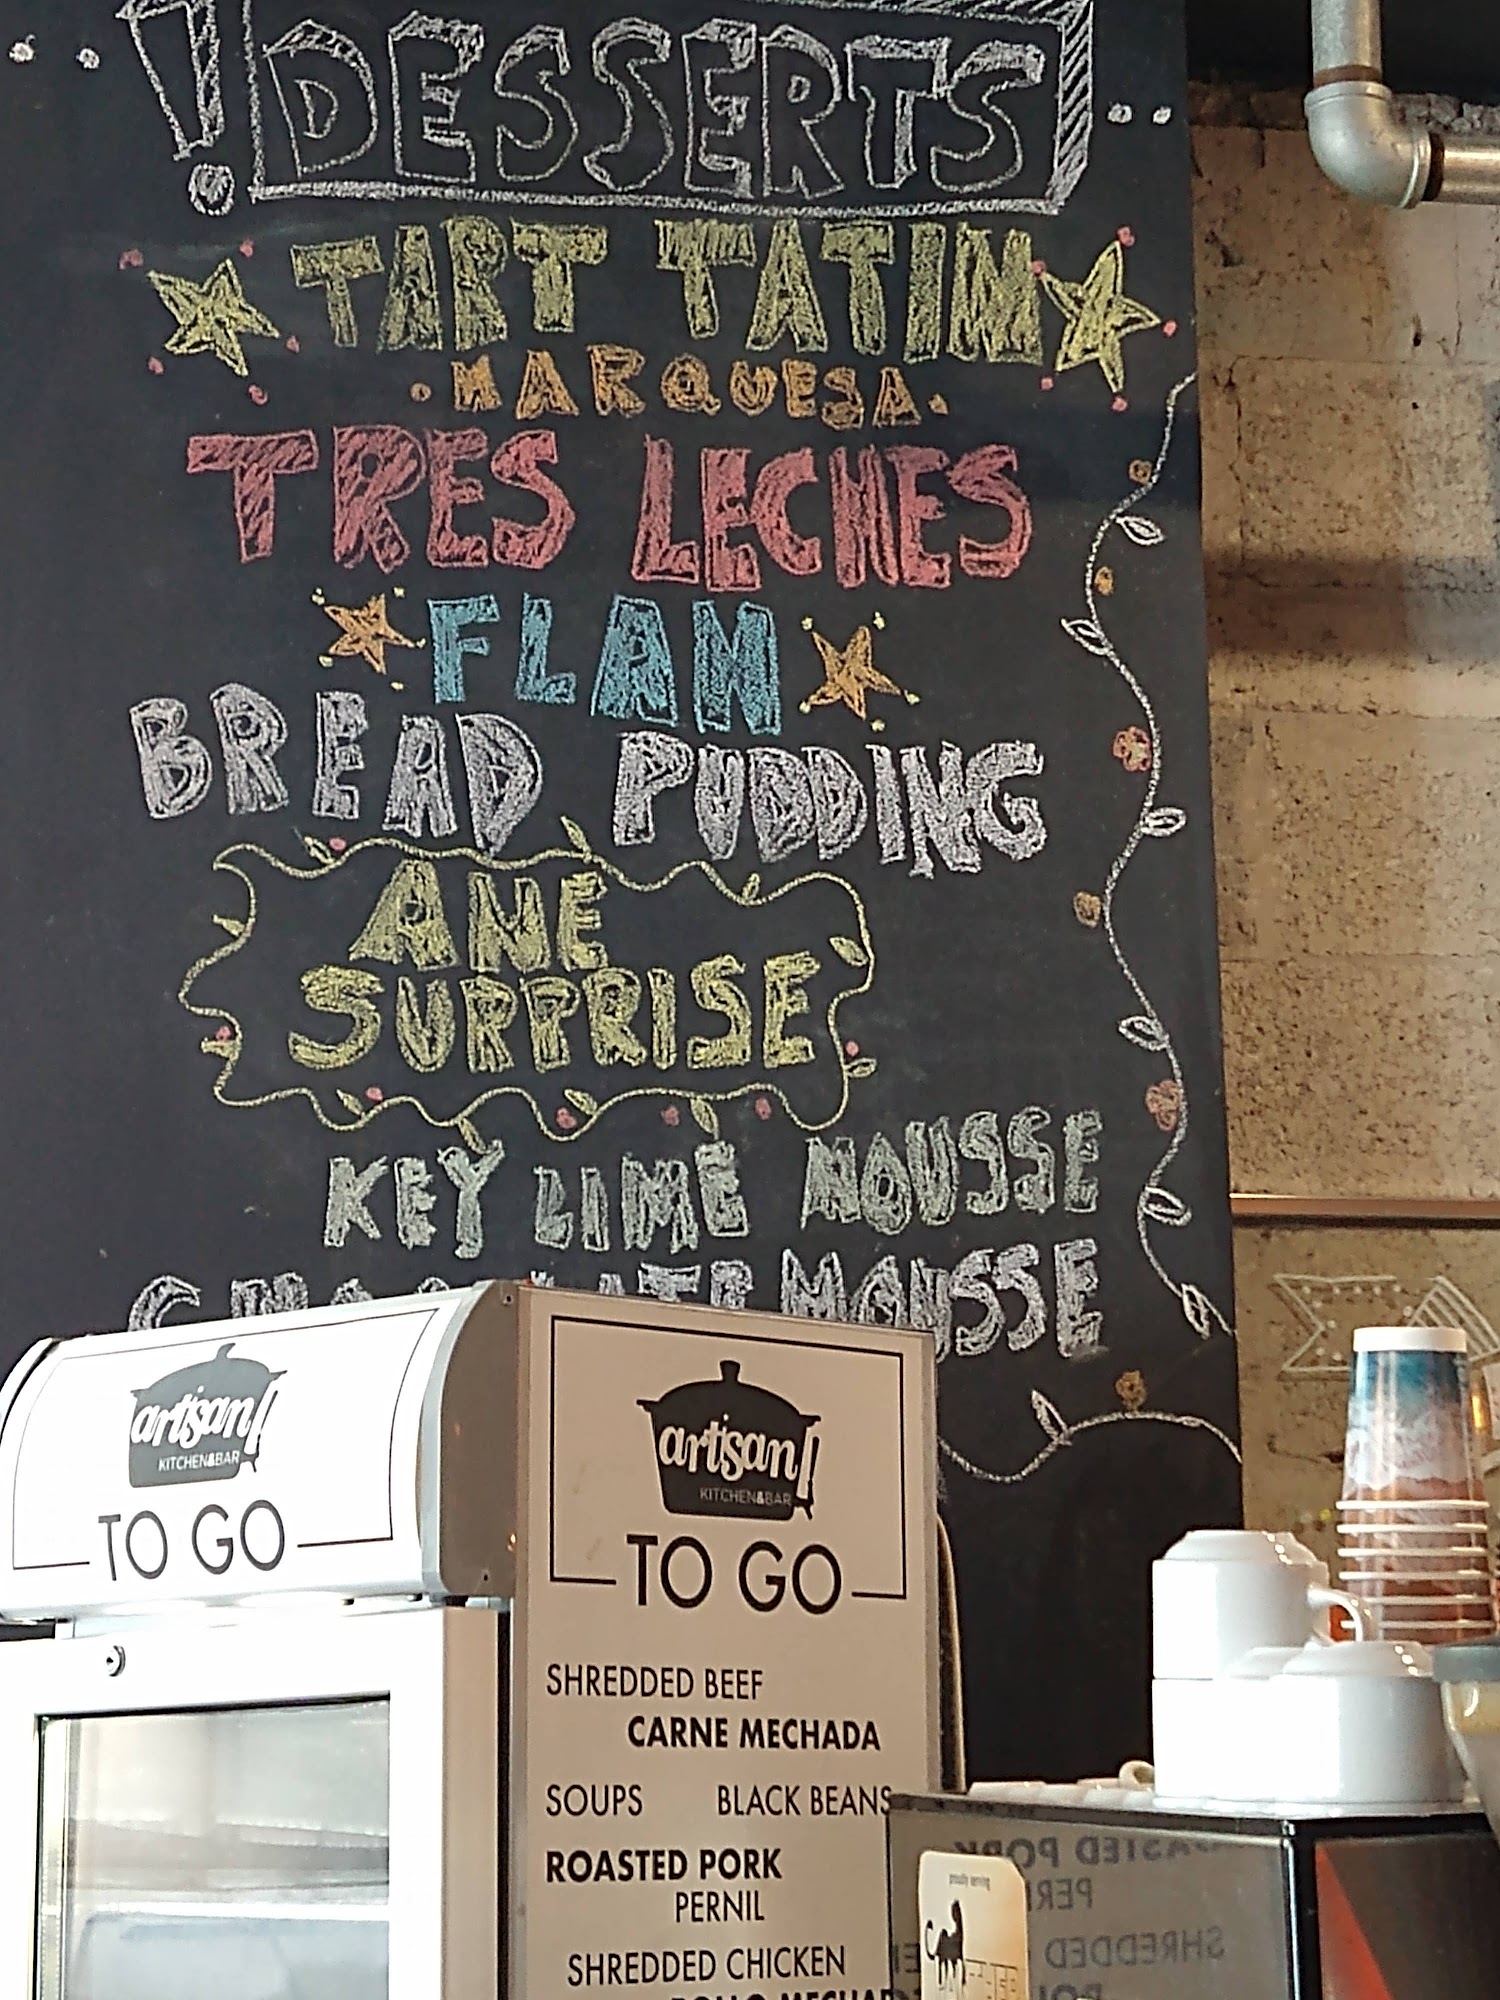 ! DESSERTS
TART TATIN
MARQUESA
TRES LECHES
FLAN
BREAD PUDDING
ANE
SURPRISE
KEY LIME MOUSSE
CHOCOLATE MOUSSE
artisan!
KITCHEN&BAR
TO GO
artisan!
KITCHEN&BAR
TO GO
SHREDDED BEEF
CARNE MECHADA
SOUPS BLACK BEANS
ROASTED PORK
PERNIL
SHREDDED CHICKEN
proudly serving